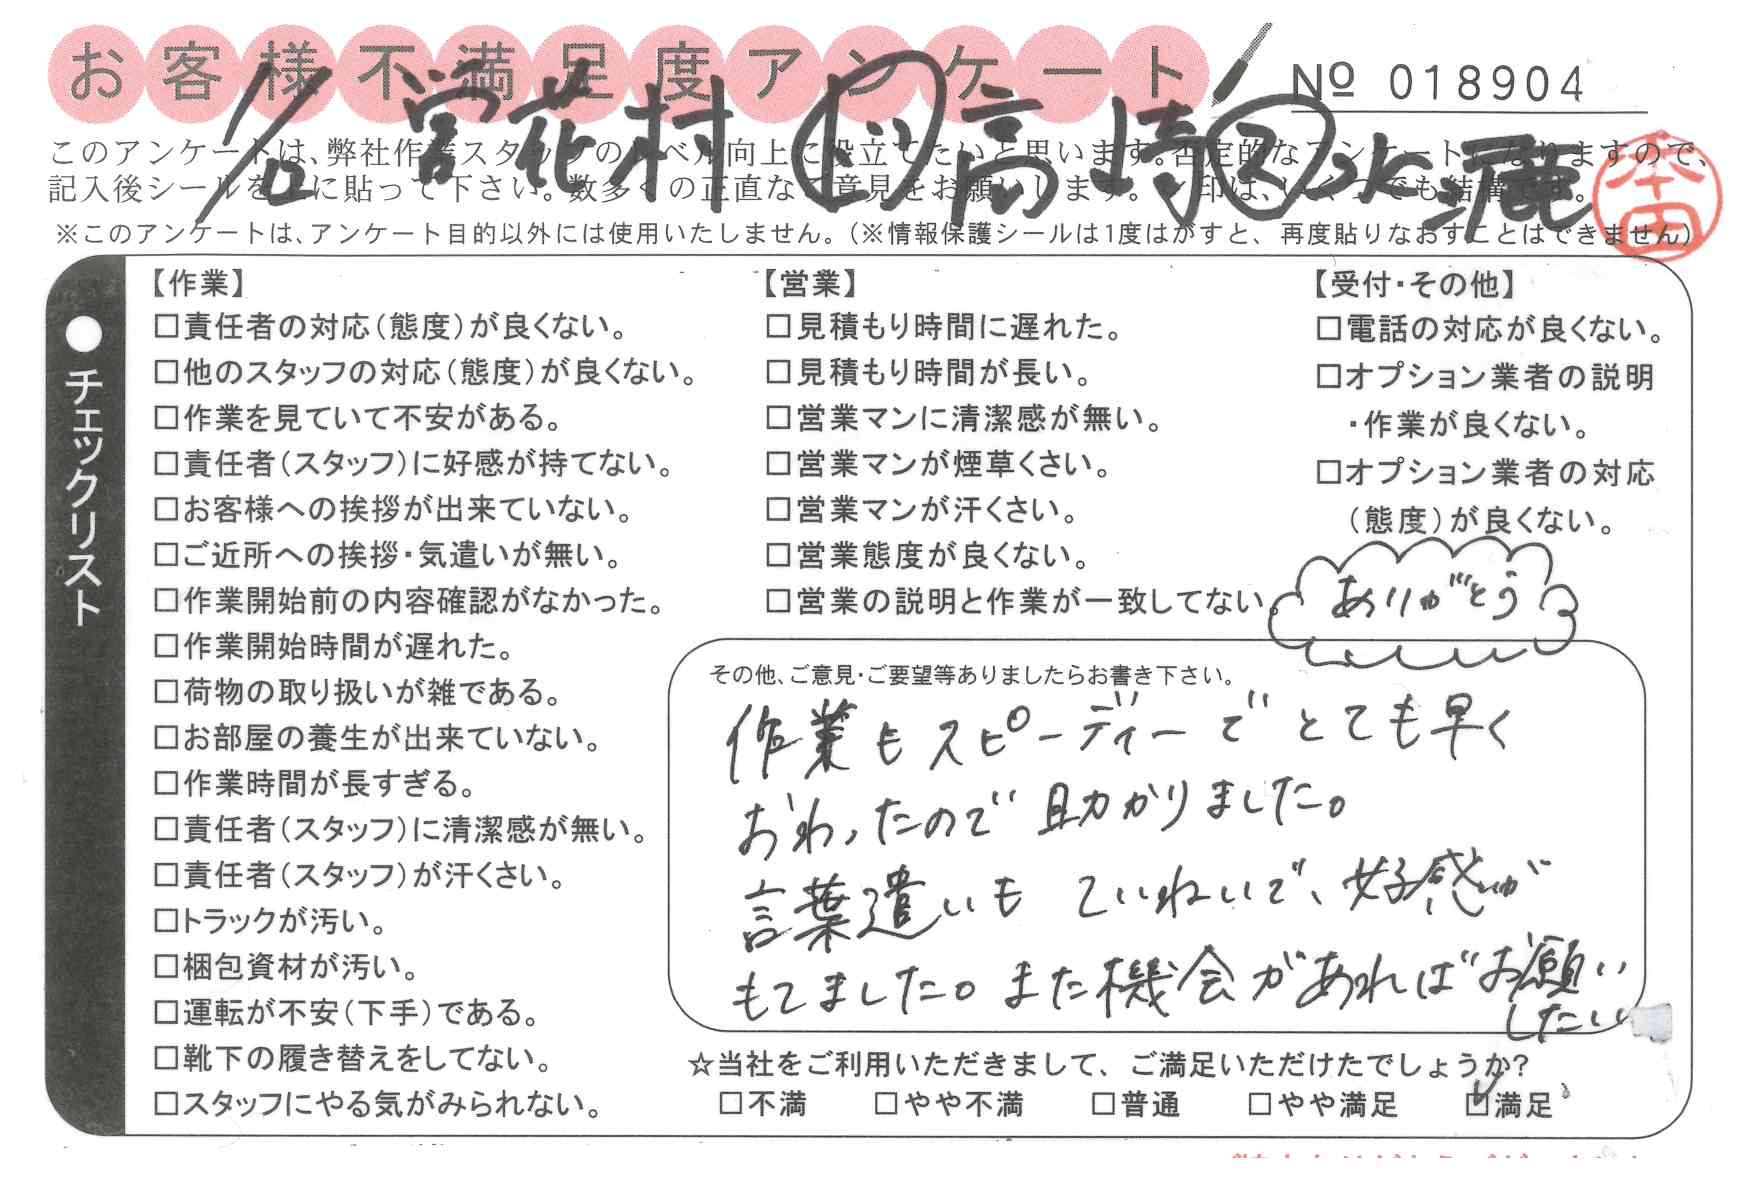 お客様不満足度アンケート
№ 018904
このアンケートは、弊社作業スタッフのレベル向上に役立てたいと思います。否定的なアンケートになりますので、
記入後シールを上に貼って下さい。数多くの正直なご意見をお願いします。レ印は、いくつでも結構です。
※このアンケートは、アンケート目的以外には使用いたしません。（※情報保護シールは1度はがすと、再度貼りなおすことはできません）
本田
チェックリスト
【作業】
□責任者の対応（態度）が良くない。
□他のスタッフの対応（態度）が良くない。
□作業を見ていて不安がある。
□責任者（スタッフ）に好感が持てない。
□お客様への挨拶が出来ていない。
□ご近所への挨拶・気遣いが無い。
□作業開始前の内容確認がなかった。
□作業開始時間が遅れた。
□荷物の取り扱いが雑である。
□お部屋の養生が出来ていない。
□作業時間が長すぎる。
□責任者（スタッフ）に清潔感が無い。
□責任者（スタッフ）が汗くさい。
□トラックが汚い。
□梱包資材が汚い。
□運転が不安（下手）である。
□靴下の履き替えをしてない。
□スタッフにやる気がみられない。
【営業】
□見積もり時間に遅れた。
□見積もり時間が長い。
□営業マンに清潔感が無い。
□営業マンが煙草くさい。
□営業マンが汗くさい。
□営業態度が良くない。
□営業の説明と作業が一致してない。
【受付・その他】
□電話の対応が良くない。
□オプション業者の説明
・作業が良くない。
□オプション業者の対応
（態度）が良くない。
ありがとう
その他、ご意見・ご要望等ありましたらお書き下さい。
作業もスピーディーでとても早く
おわったので助かりました。
言葉遣いもていねいで、好感が
もてました。また機会があればお願い
したい
☆当社をご利用いただきまして、ご満足いただけたでしょうか?
□不満 □やや不満 □普通 □やや満足 ☑満足